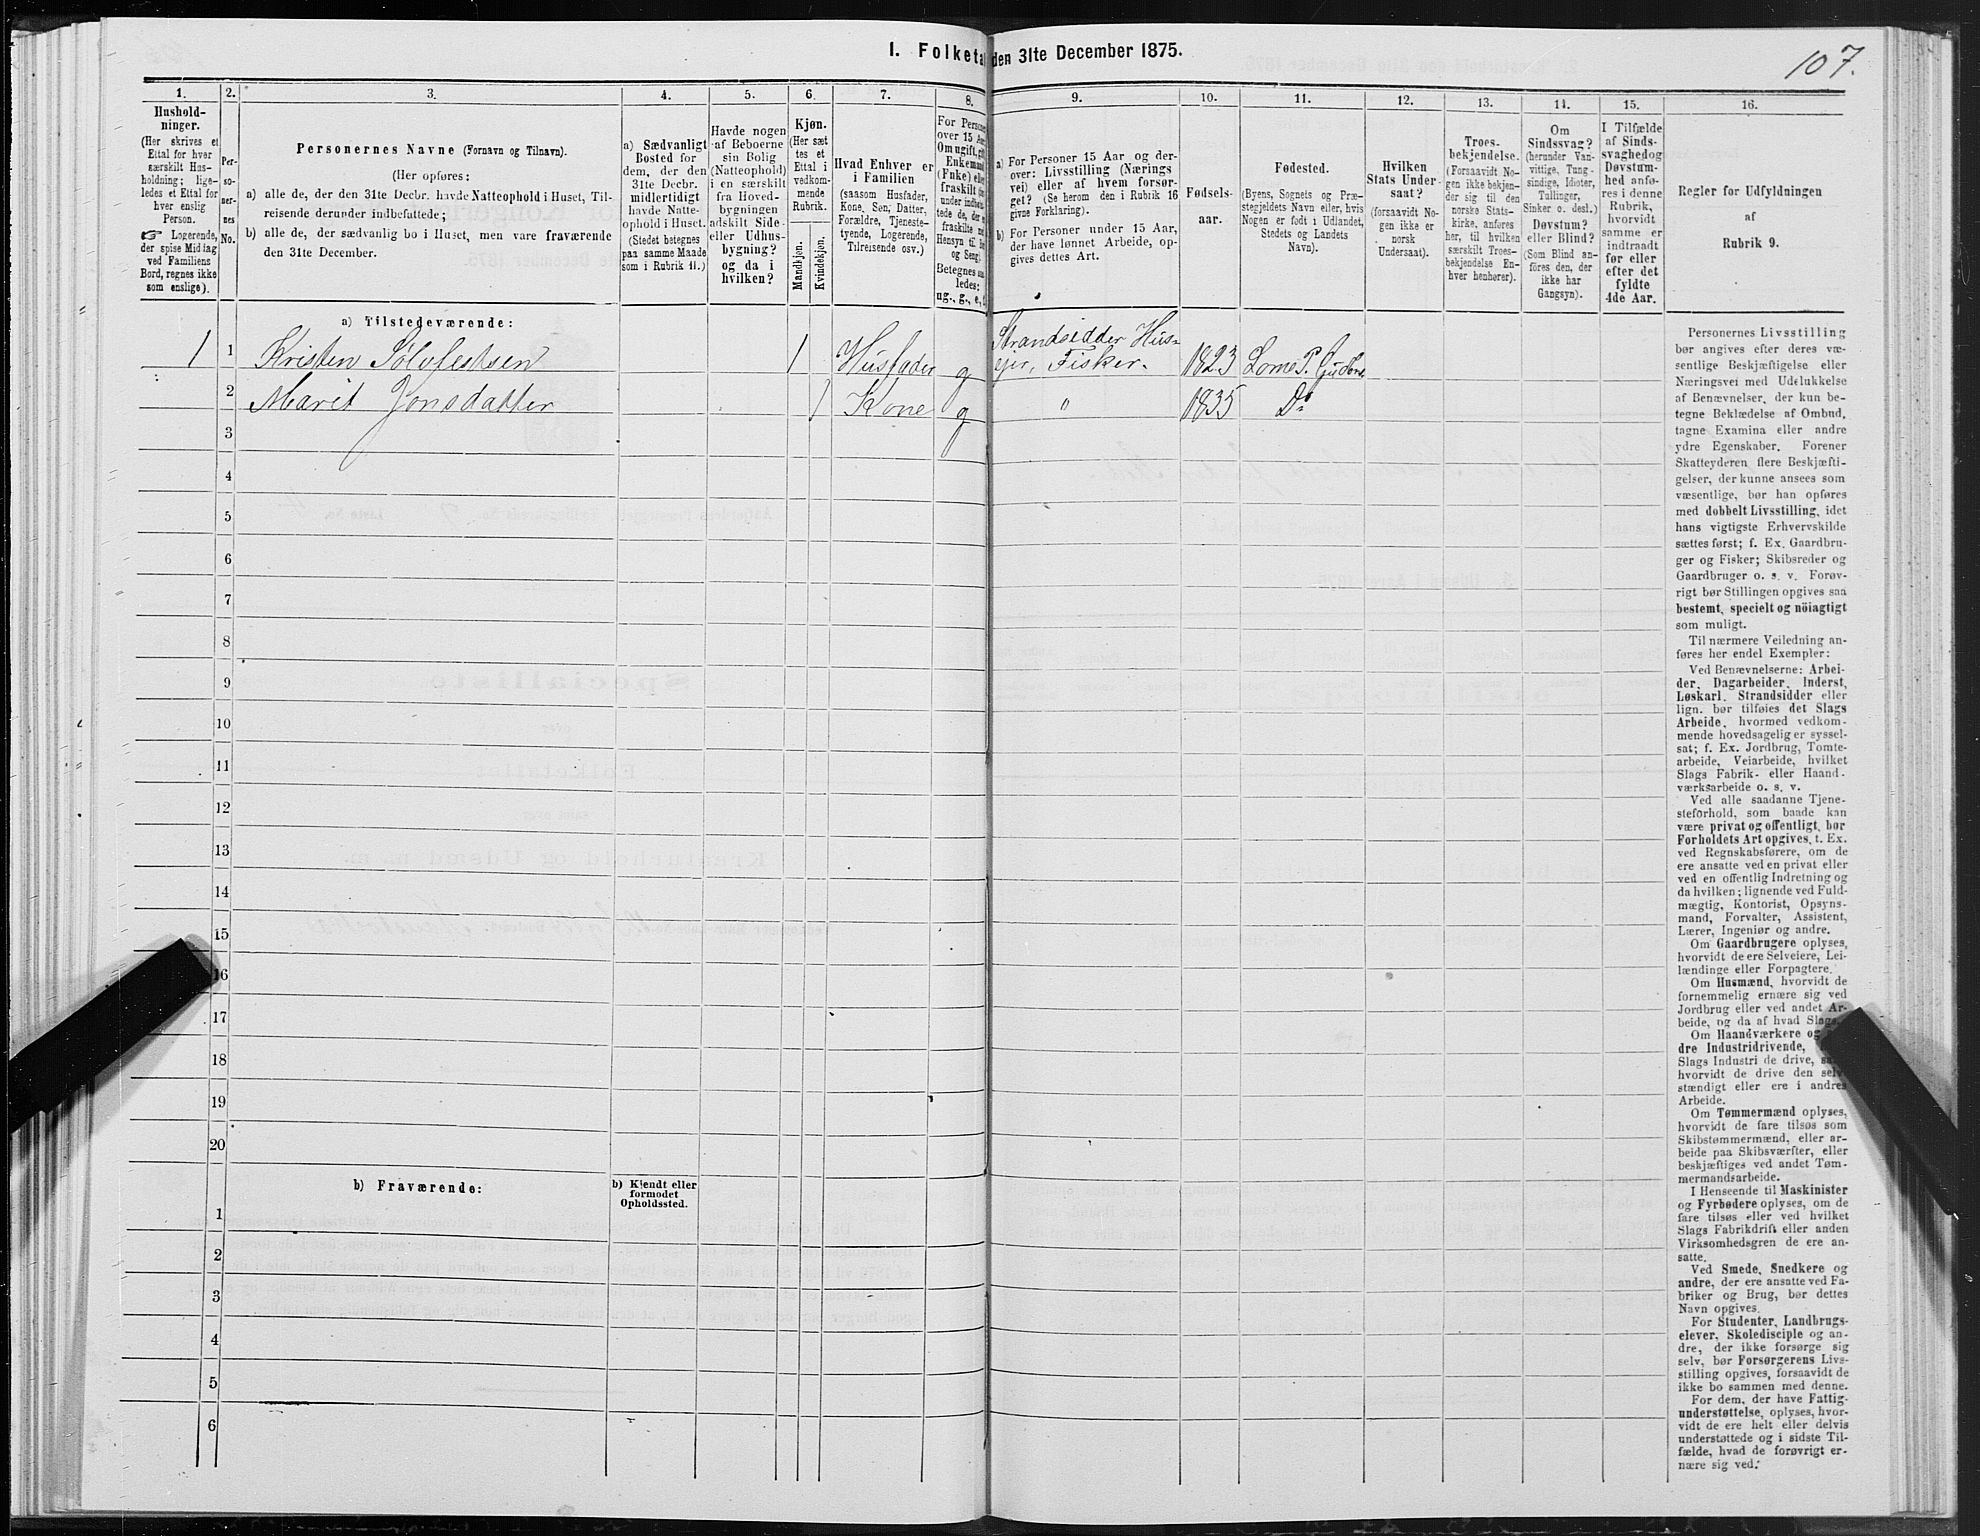 I. Folketa den 31te December 1875.
107.
1.
Hushold-
ninger.
(Her skrives et
Ettal for hver
særskilt Hus-
holdning; lige-
ledes et Ettal for
hver enslig
Person.
☞ Logerende,
der spise Middag
ved Familiens
Bord, regnes ikke
som enslige).
2.
Per-
so-
ner-
nes
No.
3.
Personernes Navne (Fornavn og Tilnavn).
(Her opføres:
a) alle de, der den 31te Decbr. havde Natteophold i Huset, Til-
reisende derunder indbefattede;
b) alle de, der sædvanlig bo i Huset, men vare fraværende
den 31te December.
4.
a) Sædvanligt
Bosted for
dem, der den
31te Decbr.
midlertidigt
havde Natte-
ophold i Huset.
(Stedet betegnes
paa samme Maade
som i Rubrik 11.)
5.
Havde nogen
af Beboerne
sin Bolig
(Natteophold)
i en særskilt
fra Hoved-
bygningen
adskilt Side-
eller Udhus-
bygning?
og da i
hvilken?
6.
Kjøn.
(Her sæt
tes et
Ettal i
vedkom-
mende
Rubrik.
Mandkjøn.
Kvindekjøn.
7.
Hvad Enhver er
i Familien
(saasom Husfader,
Kone, Søn, Datter,
Forældre, Tjeneste-
tyende, Logerende,
Tilreisende osv.)
8.
For Person
over 15 Aa
Om ugift, gift
Enkemand
(Enke) eller
fraskilt
under indbefat-
tede de, der
fraskilte
Hensyn til Bo
og Seng
Betegnes saa
ledes:
ug., g., e, f.
9.
a) For Personer 15 Aar og der-
over: Livsstilling (Nærings
vei) eller af hvem forsør-
get? (Se herom den i Rubrik 16
givne Forklaring).
b) For Personer under 15 Aar,
der have lønnet Arbeide, op-
gives dettes Art.
10.
Fødsels-
aar.
11.
Fødested.
(Byens, Sognets og Præ-
stegjeldets Navn eller, hvis
Nogen er født i Udlandet,
Stedets og Landets
Navn).
12.
Hvilken
Stats Under-
saat?
(forsaavidt No-
gen ikke er
norsk
Undersaat).
13.
Troes-
bekjendelse.
(Forsaavidt No-
gen ikke bekjen-
der sig til den
norske Stats-
kirke, anføres
her, til hvilken
særskilt Troes-
bekjendelse En-
hver henhører).
14.
Om
Sindssvag?
(herunder Van-
vittige, Tung-
sindige, Idioter,
Tullinger,
Sinker o. desl.)
Døvstum?
eller Blind?
(Som Blind an-
føres den, der
ikke har
Gangsyn).
15.
I Tilfælde
af Sinds-
svaghed og
Døvstum-
hed anfø-
res i denne
Rubrik,
hvorvidt
samme er
indtraadt
før eller
efter det
fyldte
4de Aar.
16.
Regler for Udfyldningen
af
Rubrik 9.
a) Tilstedeværende:
1 1 Kristen Sølvfestsen 1 Husfader g Strandsidder Hus-
ejer, Fisker. 1823 Loms P. Gudbr.
2 Marit Jonsdatter 1 Kone g " 1835 Do
3
4
5
6
7
8
9
10
11
12
13
14
15
16
17
18
19
20
b) Fraværende:
b) Kjendt eller
formodet
Opholdssted.
1
2
3
4
5
6
Personernes Livsstilling
bør angives efter deres væ-
sentlige Beskjæftigelse eller
Næringsvei med Udelukkelse
af Benævnelser, der kun be-
tegne Beklædelse af Ombud,
tagne Examina eller andre
ydre Egenskaber. Forener
Skatteyderen flere Beskjæfti-
gelser, der kunne ansees som
væsentlige, bør han opføres
med dobbelt Livsstilling, idet
hans vigtigste Erhvervskilde
sættes først; f. Ex. Gaardbru-
ger og Fisker; Skibsreder og
Gaardbruger o. s. v. Forøv-
rigt bør Stillingen opgives saa
bestemt, specielt og nöiagtigt
som muligt.
Til nærmere Veiledning an-
føres her endel Exempler:
Ved Benævnelserne: Arbei-
der, Dagarbeider, Inderst,
Løskarl, Strandsidder eller
lign. bør tilføies det Slags
Arbeide, hvormed vedkom-
mende hovedsagelig er syssel-
sat; f. Ex. Jordbrug, Tomte-
arbeide, Veiarbeide, hvilket
Slags Fabrik- eller Haand-
værksarbeide o. s. v.
Ved alle saadanne Tjene-
steforhold, som baade kan
være privat og offentligt, bør
Forholdets Art opgives, t. Ex.
ved Regnskabsførere, om de
ere ansatte ved en privat eller
ved en offentlig Indretning og
da hvilken; lignende ved Fuld-
mægtig, Kontorist, Opsyns-
mand, Forvalter, Assistent,
Lærer, Ingeniør og andre.
Om Gaardbrugere oplyses,
hvorvidt de ere Selveiere, Lei-
lændinge eller Forpagtere.
Om Husmænd, hvorvidt de
fornemmelig ernære sig ved
Jordbrug eller ved andet Ar-
beide, og da af hvad Slags.
Om Haandværkere og an-
dre Industridrivende,
Slags Industri de drive, samt
hvorvidt de drive den selv-
stændigt eller ere i andres
Arbeide.
Om Tømmermænd oplyses,
hvorvidt de fare tilsøs som
Skibstømmermænd, eller ar-
beide paa Skibsværfter, eller
beskjæftiges ved andet Tøm-
mermandsarbeide.
I Henseende til Maskinister
og Fyrbødere oplyses, om de
fare tilsøs eller ved hvilket
Slags Fabrikdrift eller anden
Virksomhedsgren de ere an-
satte.
Ved Smede, Snedkere og
andre, der ere ansatte ved Fa-
briker og Brug, bør dettes
Navn opgives.
For Studenter, Landbrugs-
elever, Skoledisciple og an-
dre, der ikke forsørge sig
selv, bør Forsørgerens Livs-
stilling opgives, forsaavidt de
ikke bo sammen med denne.
For dem, der have Fattig-
understøttelse, oplyses, hvor-
vidt de ere helt eller delvis
understøttede og i sidste Til-
fælde, hvad de forøvrigt er-
nære sig ved.